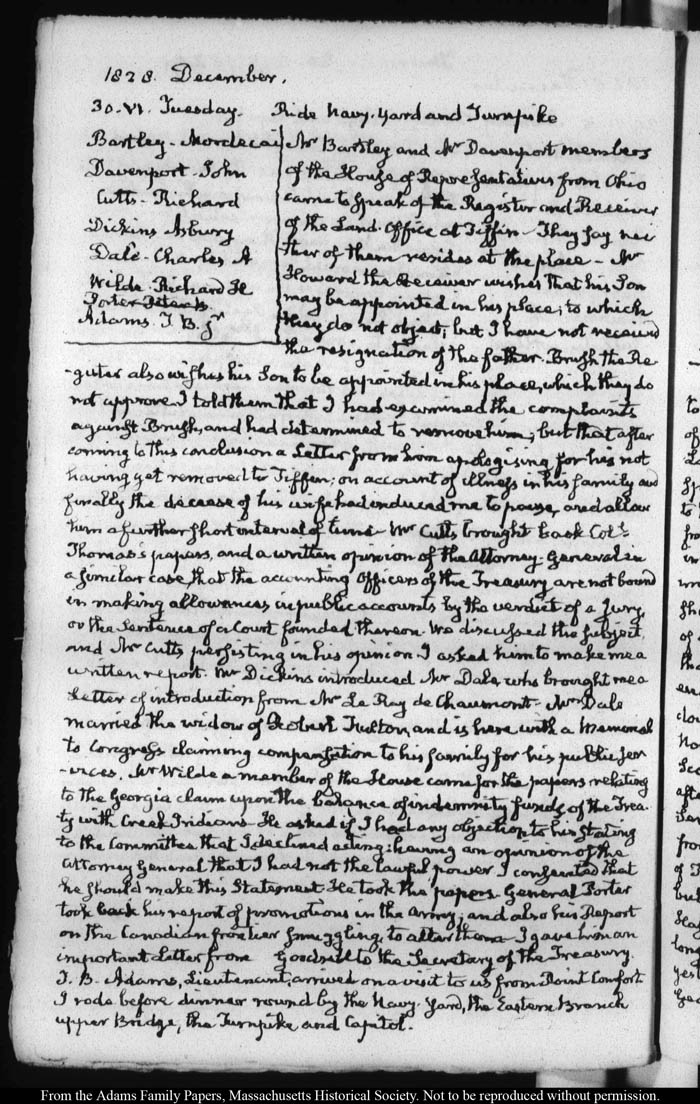 1828. December.
30. VI. Tuesday. Ride Navy-Yard and Turnpike
Bartley - Mordecai
Davenport - John
Cutts - Richard
Dickins Asbury
Dale - Charles A
Wilde. Richard H
Porter Peter B.
Adams. T. B. Jr
Mr Bartley and Mr Davenport members
of the House of Representatives from Ohio
came to speak of the Register and Receiver
of the Land-Office at Tiffin - They say nei
ther of them resides at the place - Mr
Howard the Receiver wishes that his Son
may be appointed in his place; to which
they do not object; but I have not received
the resignation of the father. Brush the Re
-gister also wishes his Son to be appointed in his place, which they do
not approve. I told them that I had examined the complaints
against Brush, and had determined to remove him; but that after
coming to this conclusion a Letter from him apologising for his not
having yet removed to Tiffin; on account of illness in his family and
finally the decease of his wife had induced me to pause, and allow
him a further short interval of time - Mr Cutts brought back Coll.
Thomas's papers, and a written opinion of the Attorney-General in
a similar case, that the accounting Officers of the Treasury are not bound
in making allowances in public accounts by the verdict of a Jury,
or the Sentence of a Court founded thereon. We discussed this subject
and Mr Cutts persisting in his opinion I asked him to make me a
written report. Mr Dickins introduced Mr Dale, who brought me a
Letter of introduction from Mr Le Ray de Chaumont - Mr Dale
married the widow of Robert Fulton, and is here with a Memorial
to Congress claiming compensation to his family for his public ser
-vices. Mr Wilde a member of the House came for the papers relating
to the Georgia claim upon the balance of indemnity funds of the Trea-
ty with Creek Indians - He asked if I had any objection to his stating
to the Committee that I declined acting: having an opinion of the
Attorney General that I had not the lawful power. I consented that
he should make this Statement. He took the papers - General Porter
took back his report of promotions in the Army; and also his Report
on the Canadian frontier smuggling, to alter them - I gave him an
important Letter from Goodsell to the Secretary of the Treasury.
T. B. Adams, Lieutenant, arrived on a visit to us from Point Comfort
I rode before dinner round by the Navy Yard, the Eastern Branch
upper Bridge, the Turnpike and Capitol.
From the Adams Family Papers, Massachusetts Historical Society. Not to be reproduced without permission.